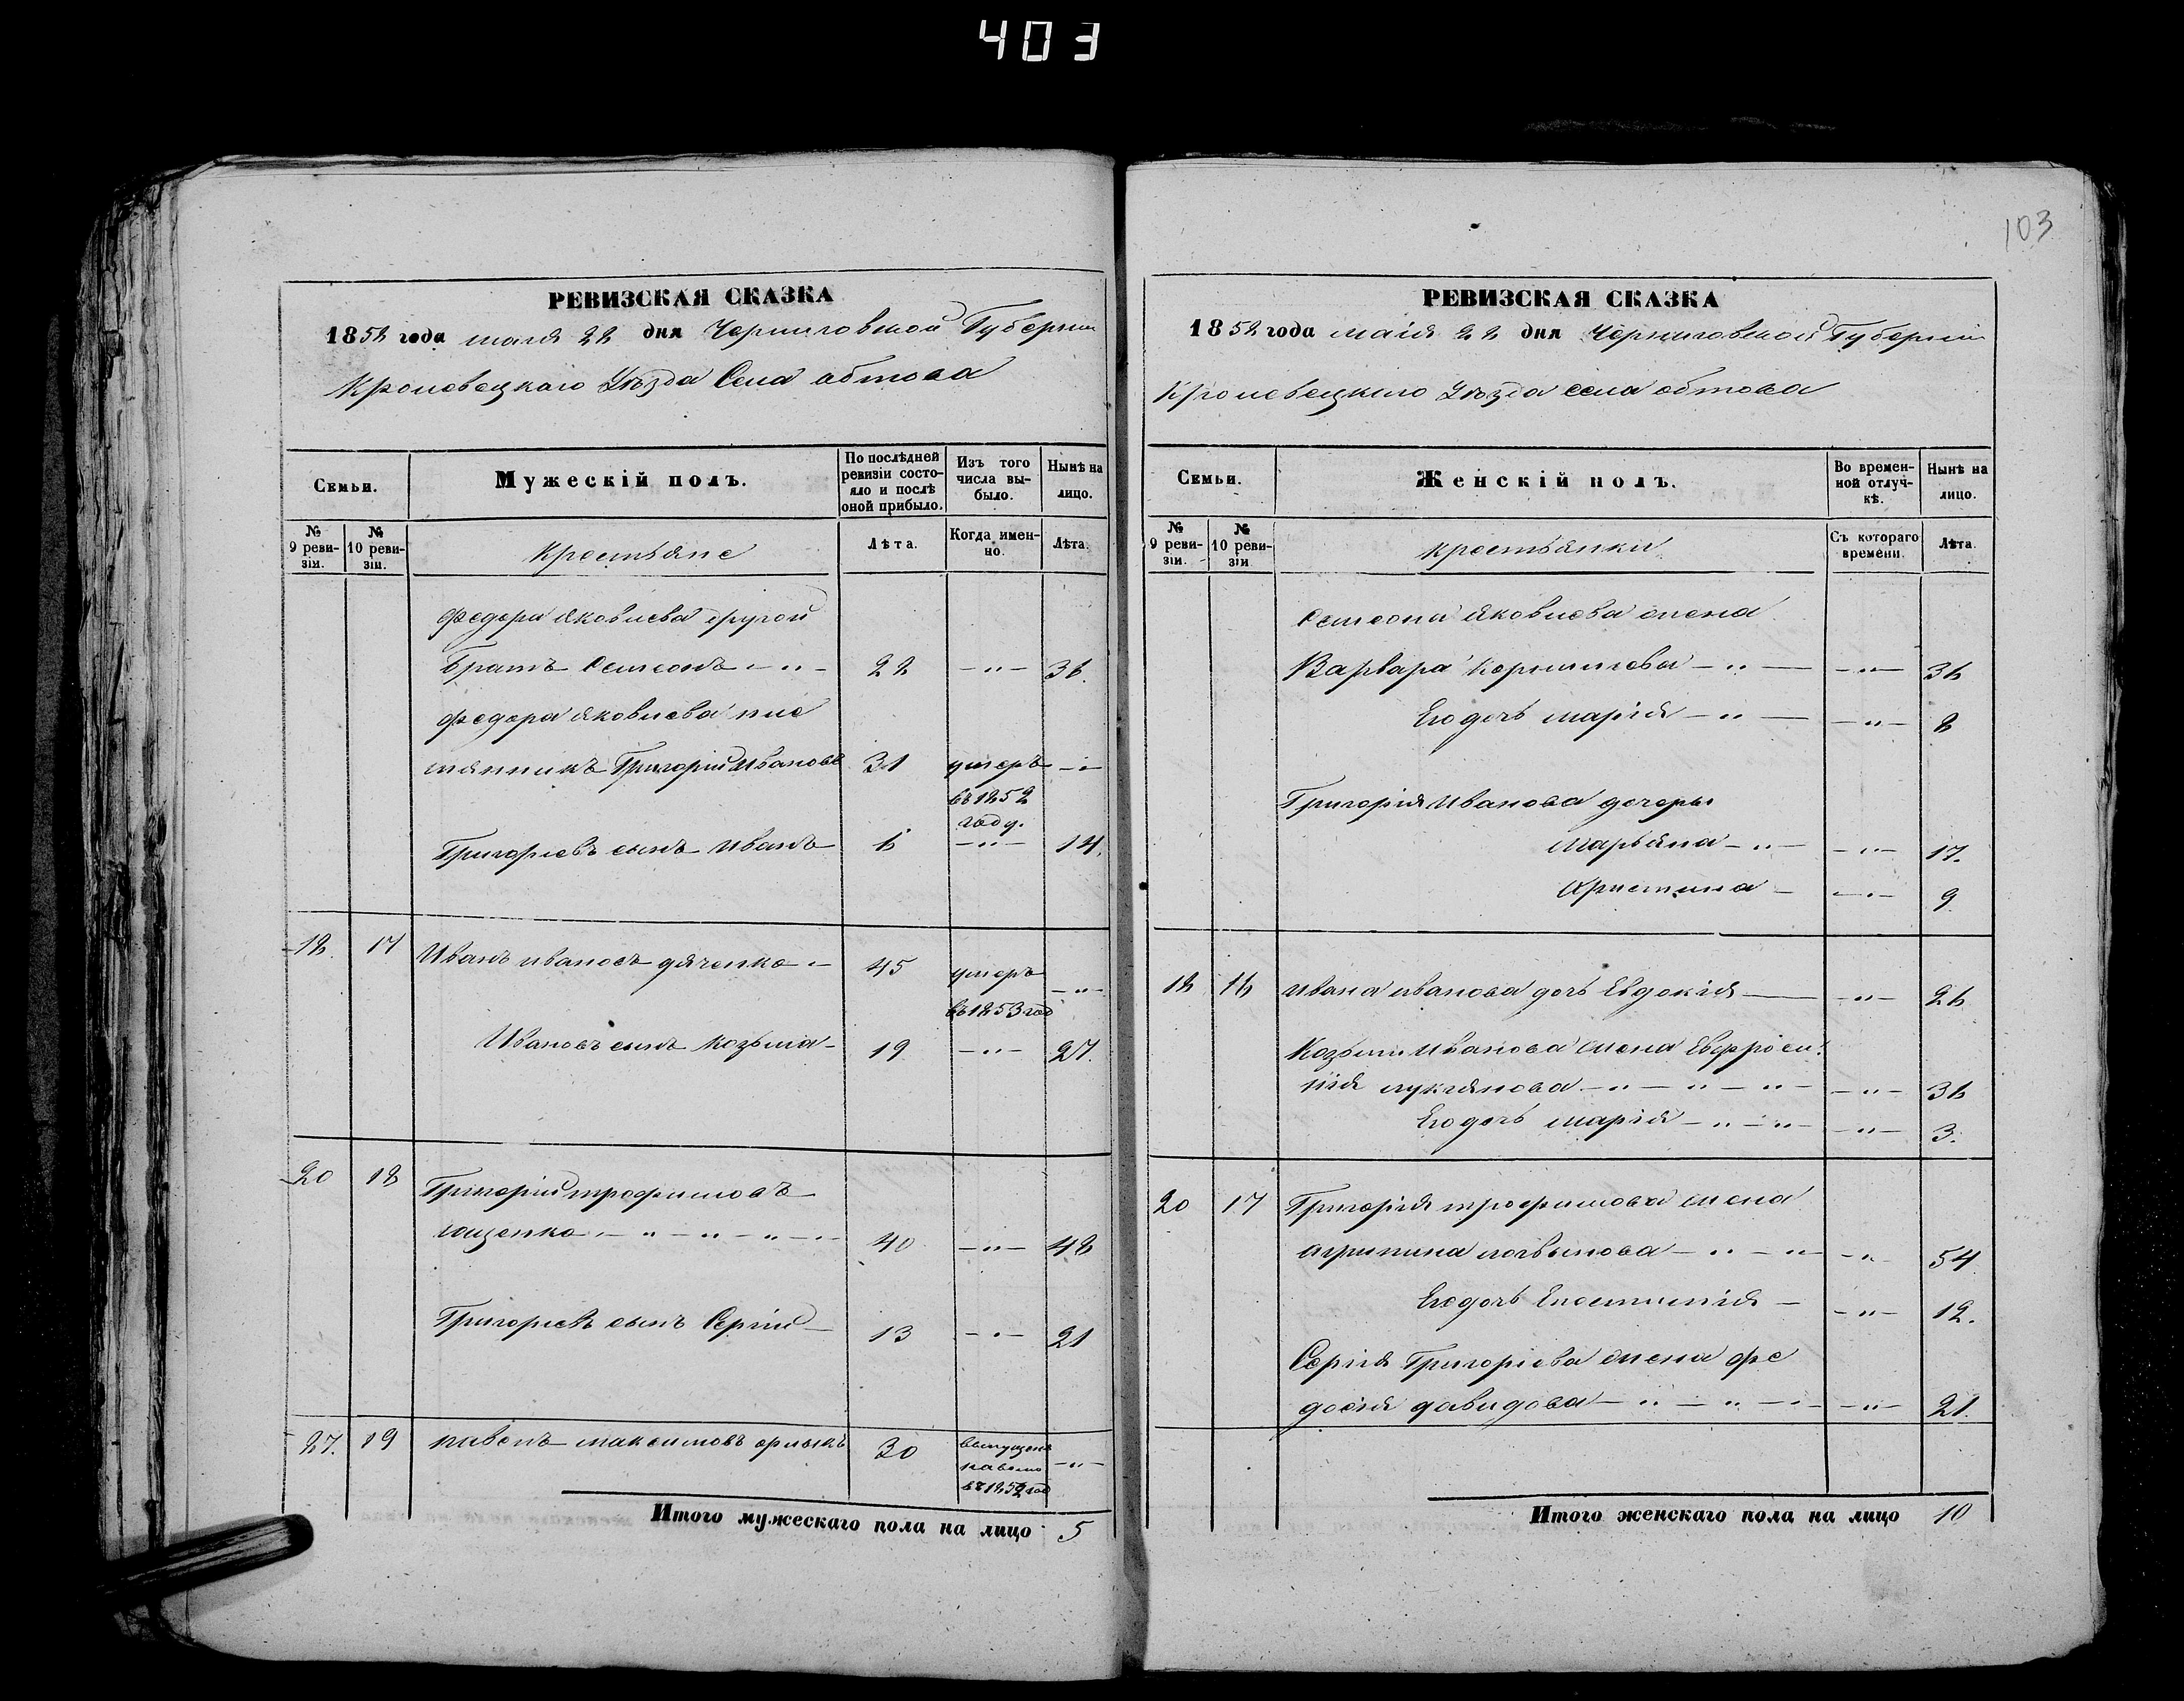 403
103
РЕВИЗСКАЯ СКАЗКА
1858 года маія 22 дня Черниговской Губерніи
Кролевецкаго Уѣзда Села обтова
Семьи.
Мужескій полъ.
По послѣдней ревизіи состояло и послѣ оной прибыло.
Изъ того числа выбыло.
Нынѣ на лицо.
№ 9 ревизіи.
№ 10 ревизіи.
Крестьяне
Лѣта.
Когда именно.
Лѣта.
Федора Яковлева другой
братъ Семеонъ - „ - 22 - „ - 36.
Федора Яковлева пле
мянникъ Григорій Ивановъ 31 умеръ - „ -
въ 1852
году.
Григорьевъ сынъ Иванъ 6 - „ - 14.
18. 17 Иванъ ивановъ дяченко - 45 умеръ - „ -
въ 1853 год
Ивановъ сынъ Козьма - 19 - „ - 27.
20 18 Григорій трофимовъ
ющенко - „ - „ - „ - 40 - „ - 48
Григорьевъ сынъ Сергій - 13 - „ - 21
27. 19 павелъ максимовъ 30 выпущенъ - „ -
на волю
въ 1852 год
Итого мужескаго пола на лицо 5
РЕВИЗСКАЯ СКАЗКА
1858 года маія 22 дня Черниговской Губерніи
Кролевецкаго Уѣзда села обтова
Семьи.
Женскій полъ.
Во временной отлучкѣ.
Нынѣ на лицо.
№ 9 ревизіи.
№ 10 ревизіи
крестьянки
Съ котораго времени.
Лѣта.
Семеона Яковлева жена
Варвара Корнилова - „ - - „ - 36
Его дочь марія - „ - - „ - 8
Григорія Иванова дочери
Марьяна - „ - - „ - 17.
Христина - - „ - 9
18 16 ивана иванова дочь Евдокія - - „ - 26
Козьмы Иванова жена Евфросин
нія лукіянова - „ - „ - „ - - „ - 36
Его дочь марія - „ - „ - - „ - 3.
20 17 Григорія трофимова жена
агрипина логвынова - „ - „ - „ - 54
Его дочь - - „ - 12.
Сергія Григорьева жена фе
досія давидова - „ - „ - - „ - 21.
Итого женскаго пола на лицо 10